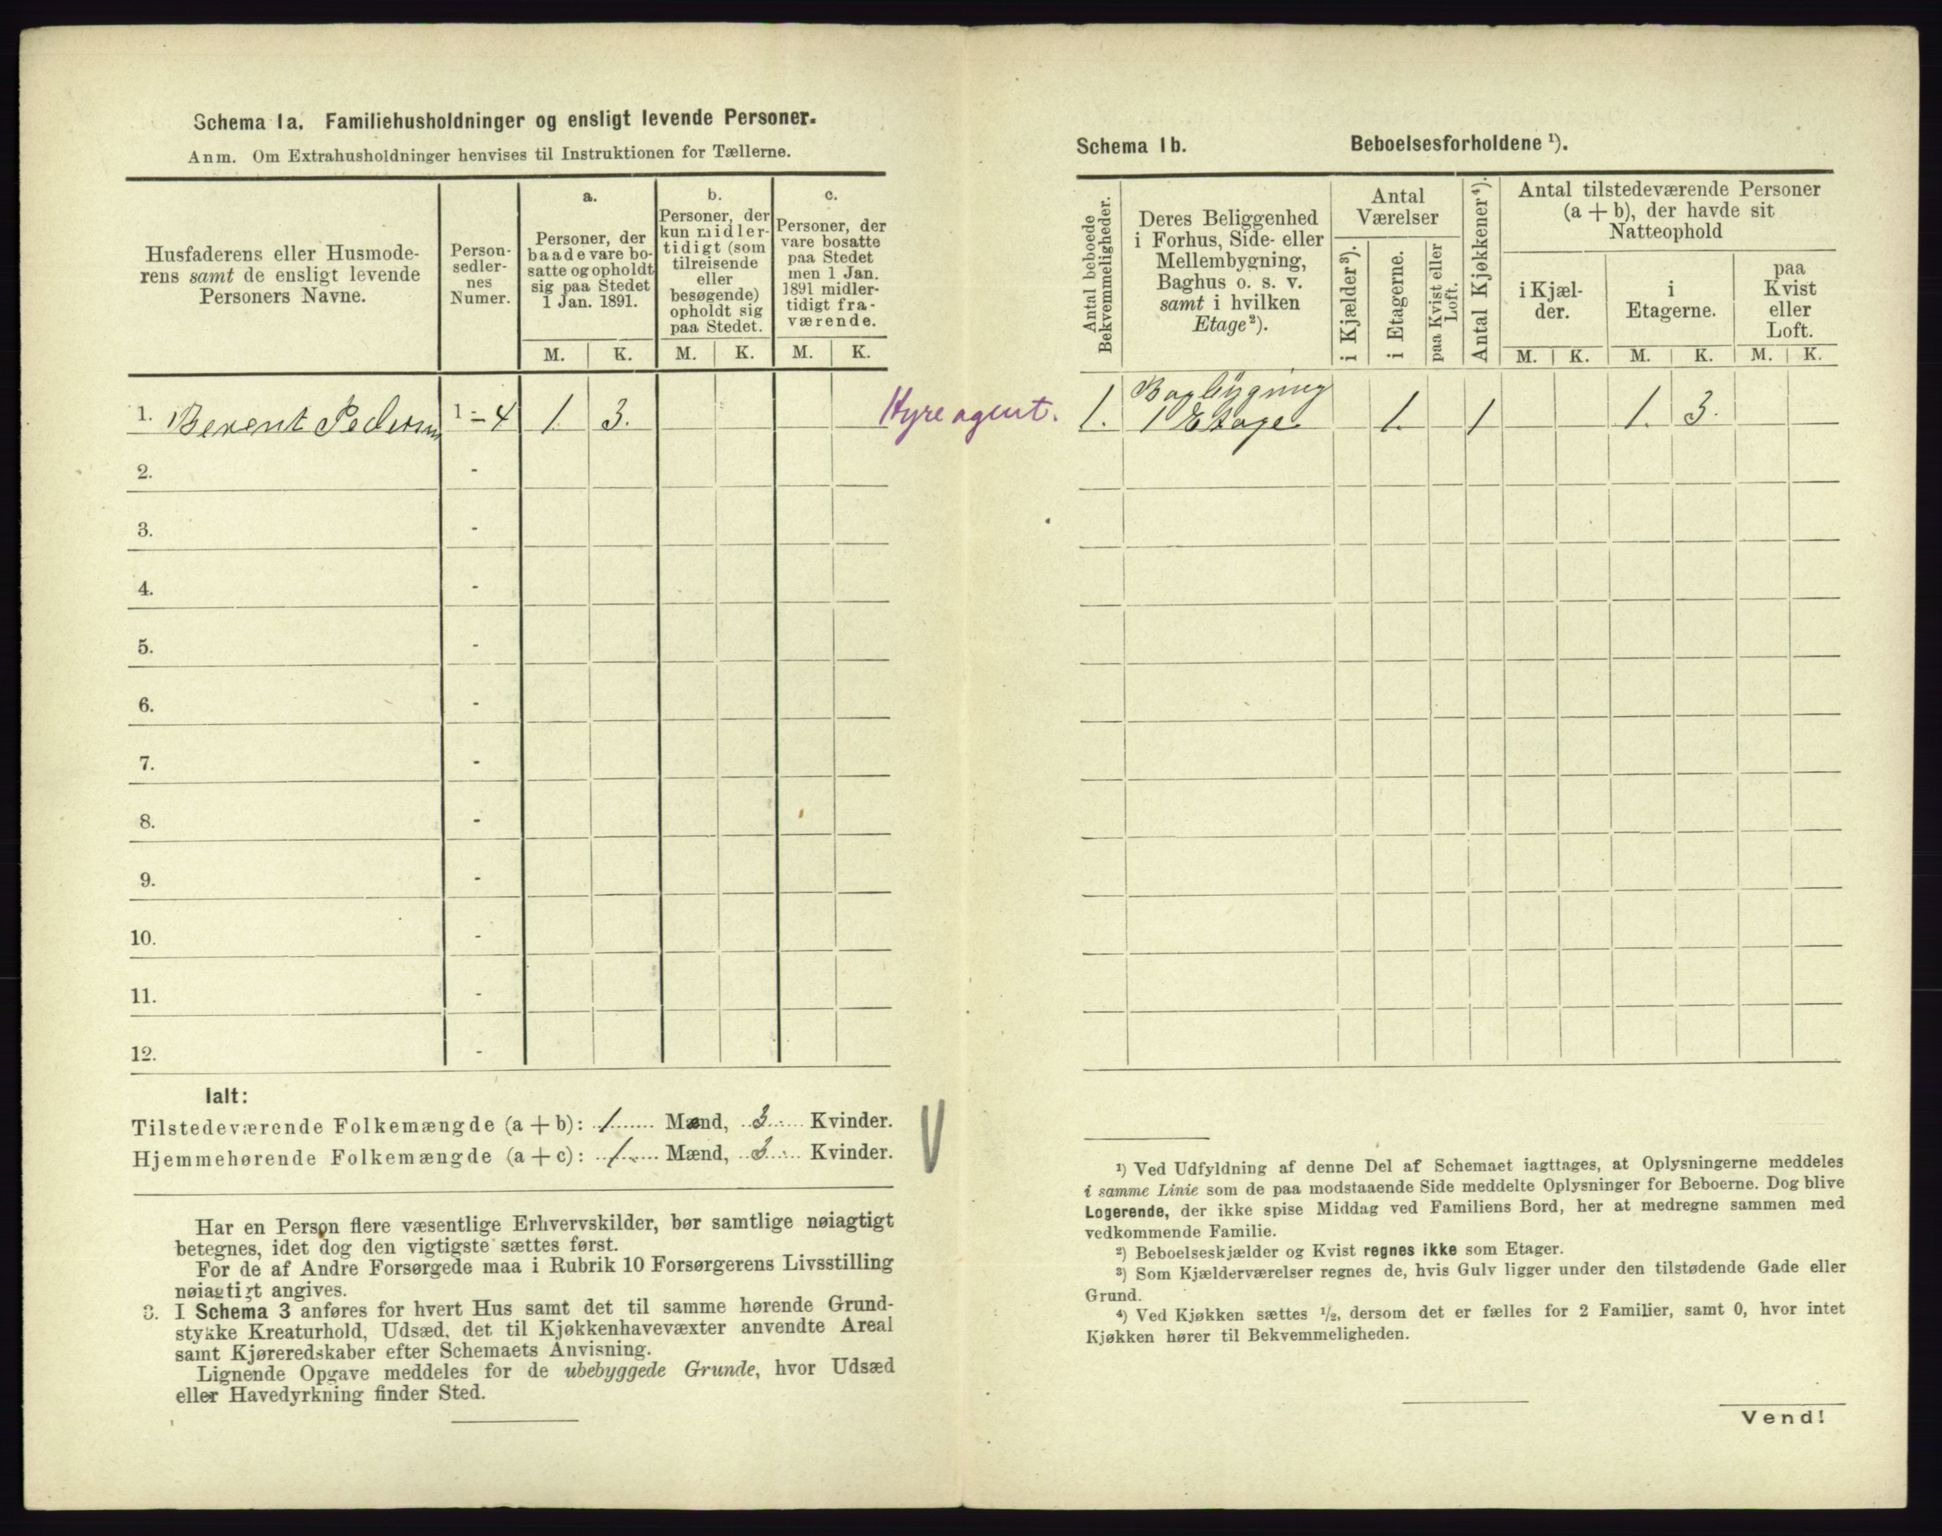 Schema 1a. Familiehusholdninger og ensligt levende Personer.
Anm. Om Extrahusholdninger henvises til Instruktionen for Tællerne.
Husfaderens eller Husmode-
rens samt de ensligt levende
Personers Navne.
Person-
sedler-
nes
Numer.
a.
Personer, der
baade vare bo-
satte og opholdt
sig paa Stedet
1 Jan. 1891.
b.
Personer, der
kun midler-
tidigt (som
tilreisende
eller
besøgende)
opholdt sig
paa Stedet.
c.
Personer, der
vare bosatte
paa Stedet
men 1 Jan.
1891 midler-
tidigt fra-
værende.
M. K. M. K. M. K.
1. Berent Pedersen 1 - 4 1. 3. Hyreagent.
2. -
3. -
4. -
5. -
6. -
7. -
8. -
9. -
10. -
11. -
12. -
Ialt:
Tilstedeværende Folkemængde (a + b): 1 Mænd, 3 Kvinder.
Hjemmehørende Folkemængde (a + c): 1 Mænd, 3 Kvinder.
Har en Person flere væsentlige Erhvervskilder, bør samtlige nøiagtigt
betegnes, idet dog den vigtigste sættes først.
For de af Andre Forsørgede maa i Rubrik 10 Forsørgerens Livsstilling
nøiagtigt angives.
3. I Schema 3 anføres for hvert Hus samt det til samme hørende Grund-
stykke Kreaturhold, Udsæd, det til Kjøkkenhavevæxter anvendte Areal
samt Kjøreredskaber efter Schemaets Anvisning.
Lignende Opgave meddeles for de ubebyggede Grunde, hvor Udsæd
eller Havedyrkning finder Sted.
Schema 1b. Beboelsesforholdene ¹).
Antal beboede
Bekvemmeligheder.
Deres Beliggenhed
i Forhus, Side- eller
Mellembygning,
Baghus o. s. v.
samt i hvilken
Etage²).
Antal
Værelser
i Kjælder³).
i Etagerne.
paa Kvist eller
Loft.
Antal Kjøkkener⁴).
Antal tilstedeværende Personer
(a + b), der havde sit
Natteophold
i Kjæl-
der.
i
Etagerne.
paa
Kvist
eller
Loft.
M. K. M. K. M. K.
Bagbygning
1. 1 Etage. 1. 1 1. 3.
¹) Ved Udfyldning af denne Del af Schemaet iagttages, at Oplysningerne meddeles
i samme Linie som de paa modstaaende Side meddelte Oplysninger for Beboerne. Dog blive
Logerende, der ikke spise Middag ved Familiens Bord, her at medregne sammen med
vedkommende Familie.
²) Beboelseskjælder og Kvist regnes ikke som Etager.
³) Som Kjælderværelser regnes de, hvis Gulv ligger under den tilstødende Gade eller
Grund.
⁴) Ved Kjøkken sættes ½, dersom det er fælles for 2 Familier, samt 0, hvor intet
Kjøkken hører til Bekvemmeligheden.
Vend!